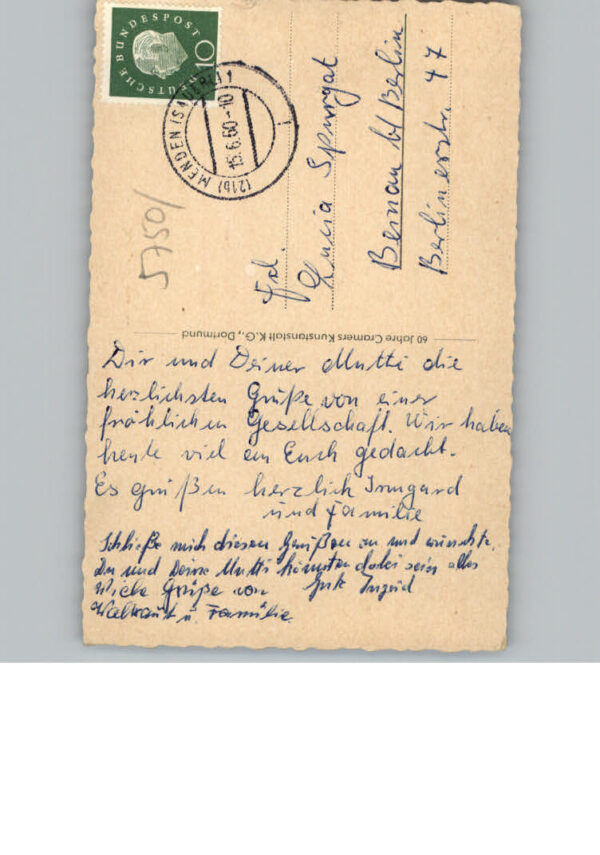 DEUTSCHE BUNDESPOST
10
(21b) MENDEN (SAUERL) 1
15.6.60-10
5750/
Frl.
Lucia Spurgat
Bernau b/ Berlin
Berlinerstr. 47
60 Jahre Cramers Kunstanstalt K.G., Dortmund
Dir und Deiner Mutti die
herzlichsten Grüße von einer
fröhlichen Gesellschaft. Wir haben
heute viel an Euch gedacht.
Es grüßen herzlich Irmgard
und Familie
Schließe mich diesen Grüßen an und wünschte,
Du und Deine Mutti könnten dabei sein alles
Gute Ingrid
Viele Grüße von
Waltraut u. Familie.